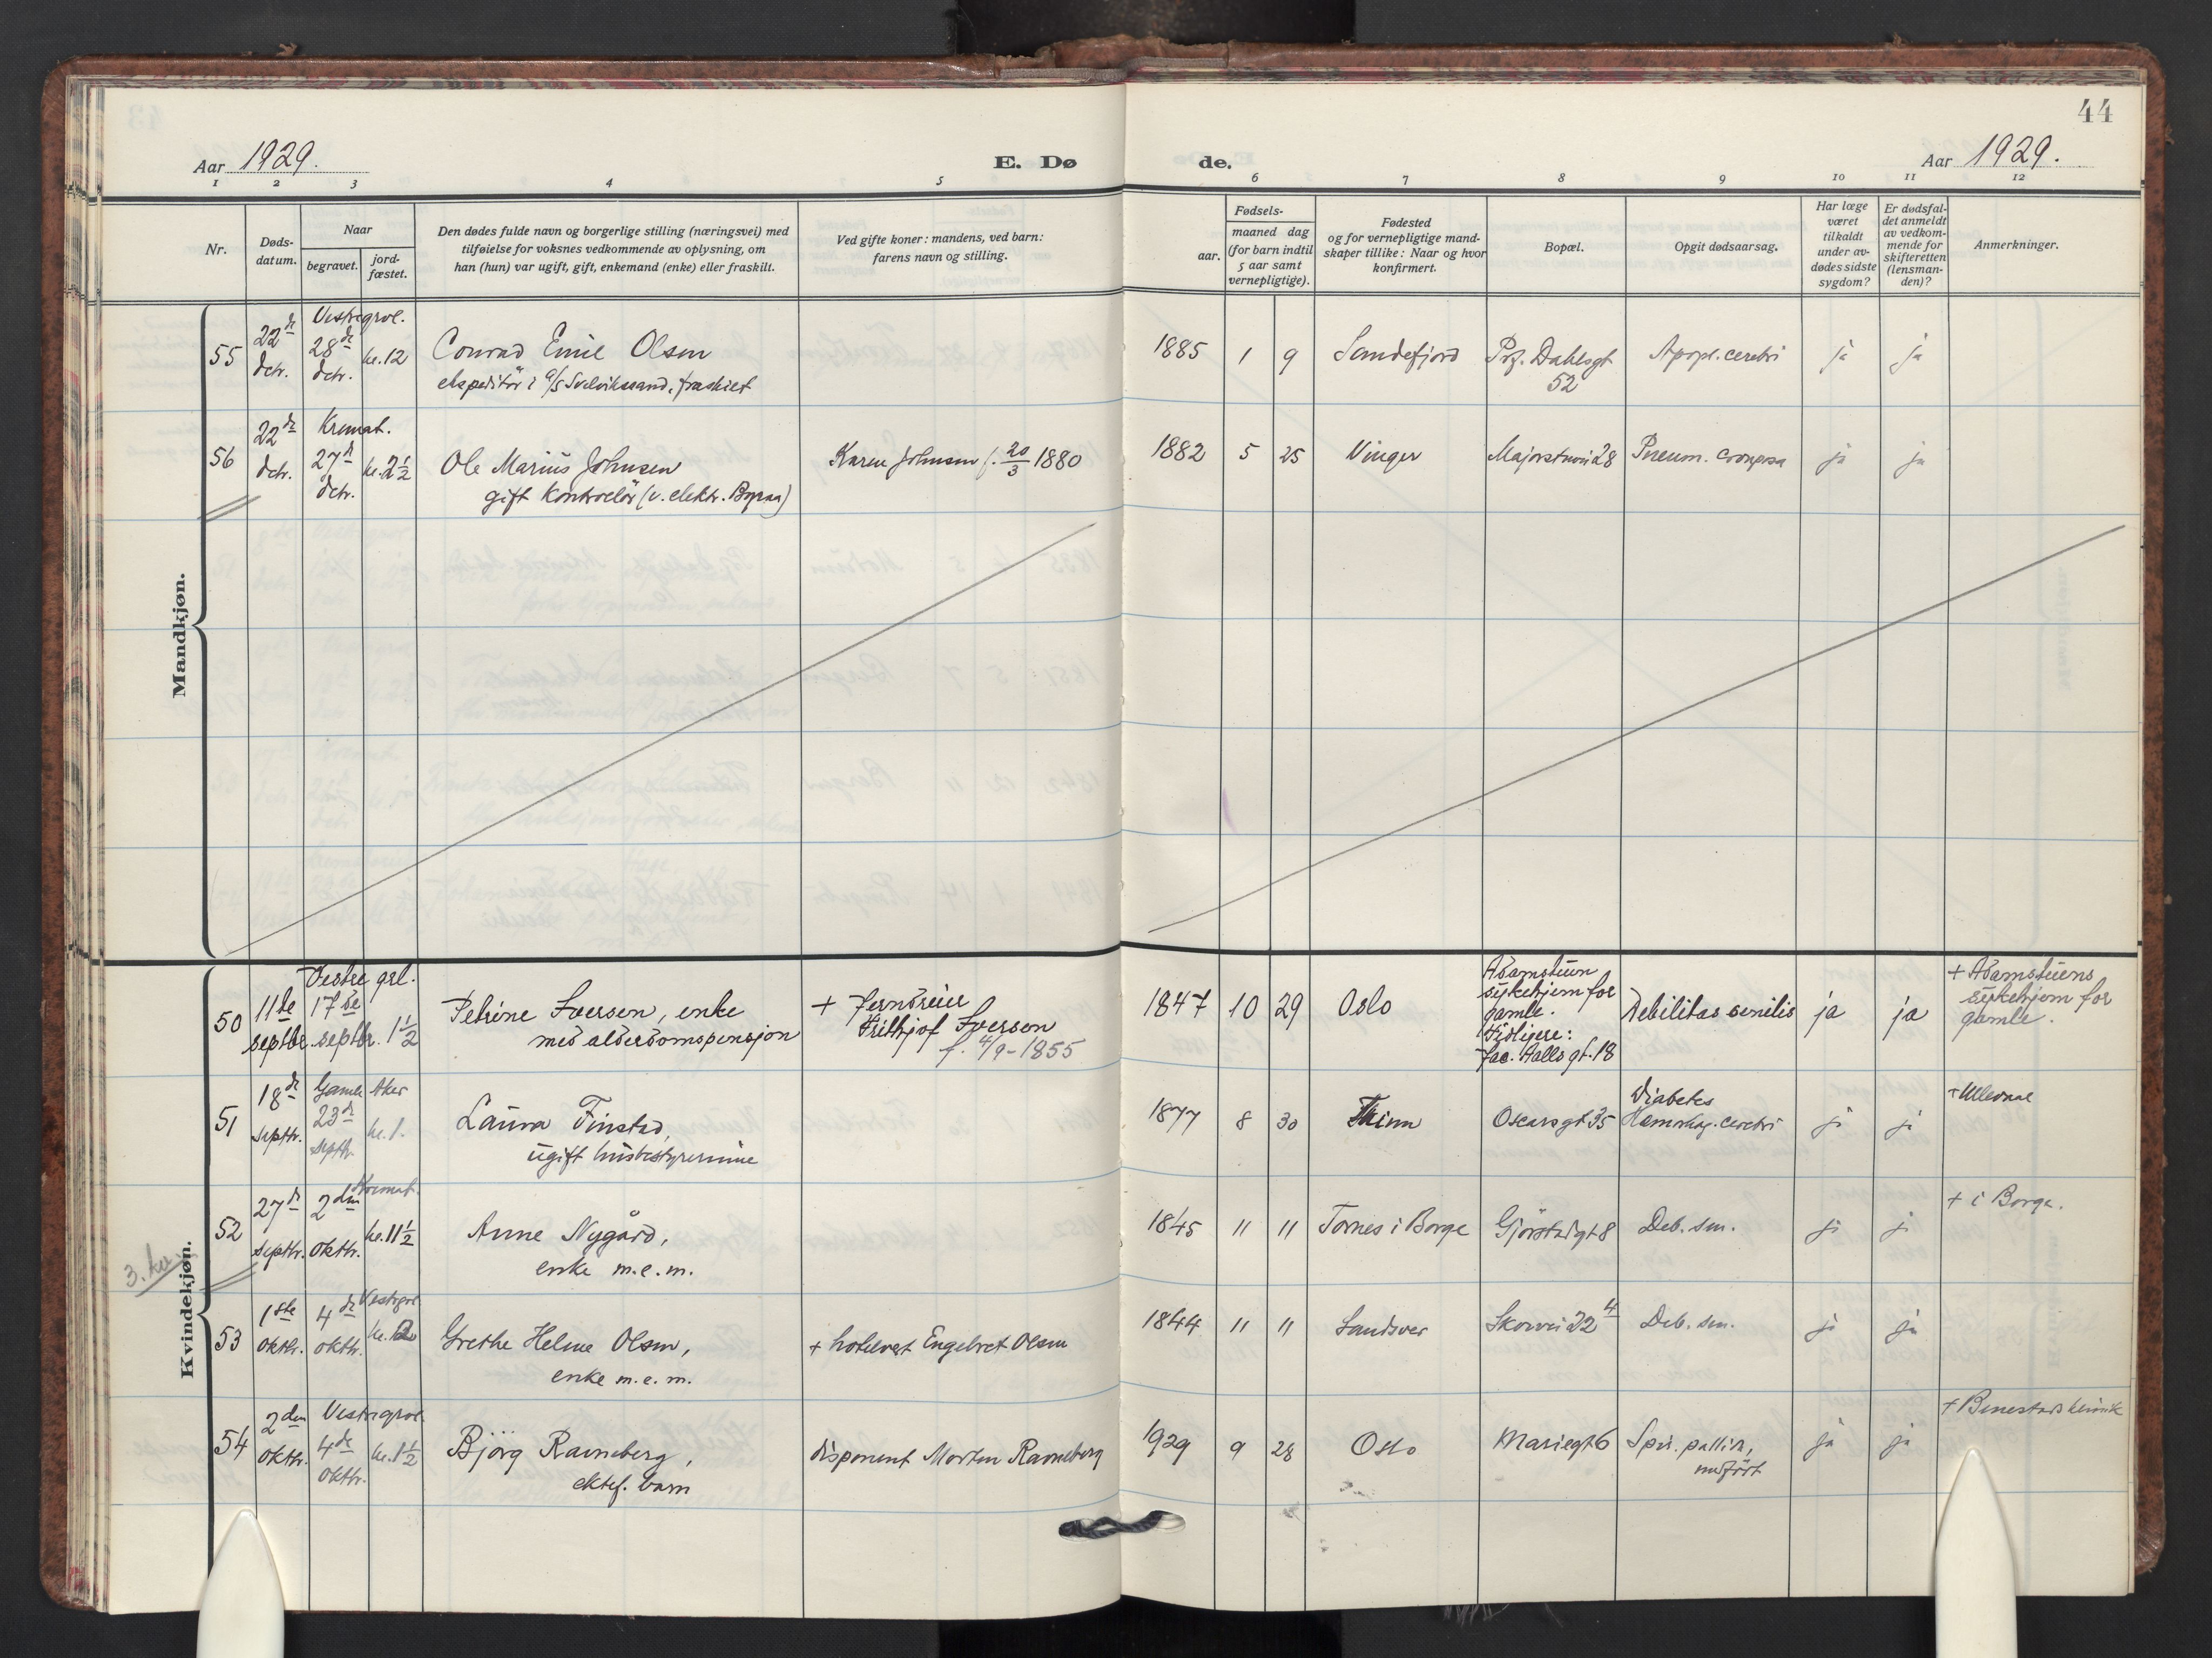 44
Aar 1929.
E. Dø
de.
Aar 1929.
1 2 3 4 5 6 7 8 9 10 11 12
Nr.
Døds-
datum.
Naar
begravet.
jord-
fæstet.
Den dødes fulde navn og borgerlige stilling (næringsvei) med
tilføielse for voksnes vedkommende av oplysning, om
han (hun) var ugift, gift, enkemand (enke) eller fraskilt.
Ved gifte koner: mandens, ved barn:
farens navn og stilling.
Fødsels-
aar.
maaned dag
(for barn indtil
5 aar samt
vernepligtige).
Fødested
og for vernepligtige mand-
skaper tillike: Naar og hvor
konfirmert.
Bopæl.
Opgit dødsaarsag.
Har læge
været
tilkaldt
under av-
dødes sidste
sygdom?
Er dødsfal-
det anmeldt
av vedkom-
mende for
skifteretten
(lensman-
den)?
Anmerkninger.
Mandkjøn.
55
22de
dcbr.
Vestregrvl.
28de
dcbr.
kl. 12
Conrad Emil Olsen
ekspeditør i a/s Svelvikssand, fraskilt
1885 1 9
Sandefjord
Prf. Dahlsgt
52
Apopl. cerebri
ja
ja
56
22de
dcbr.
Kremat.
27de
dcbr.
kl. 2½
Ole Marius Johnsen
gift kontrollør (v. elektr.
Karen Johnsen f. 20/3 1880
1882 5 25
Vinger
Majorstuvei 28
Pneum. crouposa
ja
ja
Kvindekjøn.
50
11te
septbr.
Vestre grl.
17de
septbr.
1½
Petrine Iversen, enke
med alderdomspensjon
+ Jerndreier
Frithjof Iversen
f. 4/9-1855
1847 10 29
Oslo
Adamstuen
sykehjem for
gamle.
Tidligere:
Jac. Aalls gt. 18
Debilitas senilis
ja
ja
+ Adamstuens
sykehjem for
gamle.
51
18de
septbr.
Gamle Aker
23de
septbr.
kl. 1.
Laura Finstad,
ugift husbestyrerinne
1877 8 30
Oscarsgt 35
Diabetes
Hæmorrhag. cerebri
ja
ja
+ Ullevaal
52
27de
septbr.
Kremat.
2den
oktbr.
kl. 11½
Anne Nygård,
enke m.e.m.
1845 11 11
Tornes i Borge
Gjørstadgt 8
Deb. sen.
ja
ja
+ i Borge.
3. kv.
53
1ste
oktbr.
Vestregrvl.
4de
oktbr.
kl. 12
Grethe Helene Olsen,
enke m.e.m.
+ hotelvert Engebret Olsen
1844 11 11
Sandsver
Skovvei 22 4
Deb. sen.
ja
ja
54
2den
oktbr.
Vestregrvl.
4de
oktbr.
kl. 1½
Bjørg Ravneberg,
ektef. barn
disponent Morten Ravneberg
1929 9 28
Oslo
Mariegt 6
medfødt
ja
ja